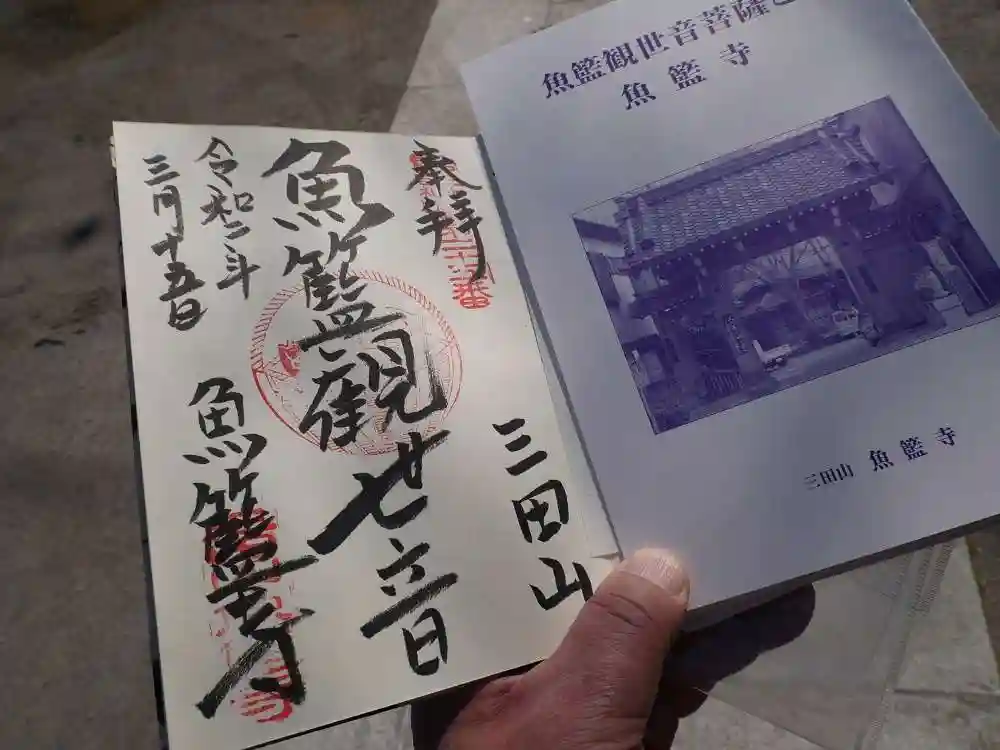 奉拝
三田山
魚籃観世音
令和二年
三月十五日
魚籃寺
魚籃観世音菩薩と
魚籃寺
三田山 魚籃寺